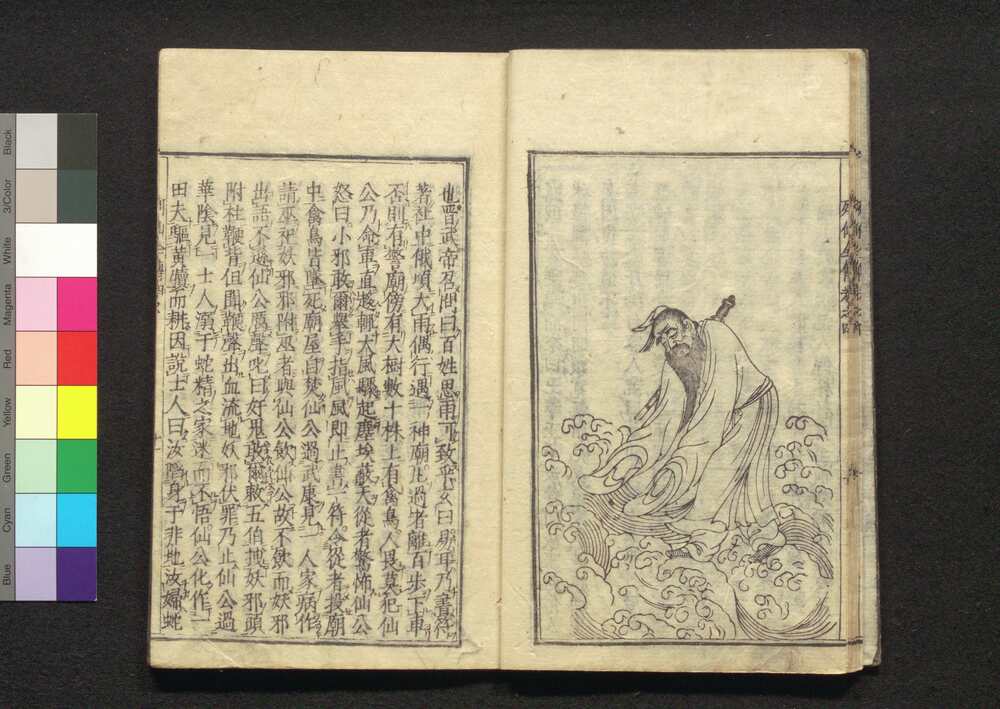 列仙全傳卷之四
也晋武帝召問曰百姓思雨可致乎玄曰易耳乃書符
著社中俄頃大雨偶行遇一神廟凡過者離百步下車
否則有警廟傍有大樹數十株上有禽鳥人畏莫犯仙
公乃命車直趨輒大風驟起塵埃蔽天從者驚怖仙公
怒曰小邪敢爾舉手指風風即止書一符令從者投廟
中禽鳥皆墜死廟屋自焚仙公過武康見一人家病作
請巫祀妖邪邪附巫者與仙公飲仙公故不飲而妖邪
出語不遜仙公厲聲叱曰好鬼敢爾敕五伯拽妖邪頭
附柱鞭背但聞鞭聲出血流地妖邪伏罪乃止仙公過
華陰見一士人溺于蛇精之家迷而不悟仙公化作一
田夫驅黃犢而耕因說士人曰汝隱身于非地汝婦蛇
Black
3/Color
White
Magenta
Red
Yellow
Green
Cyan
Blue